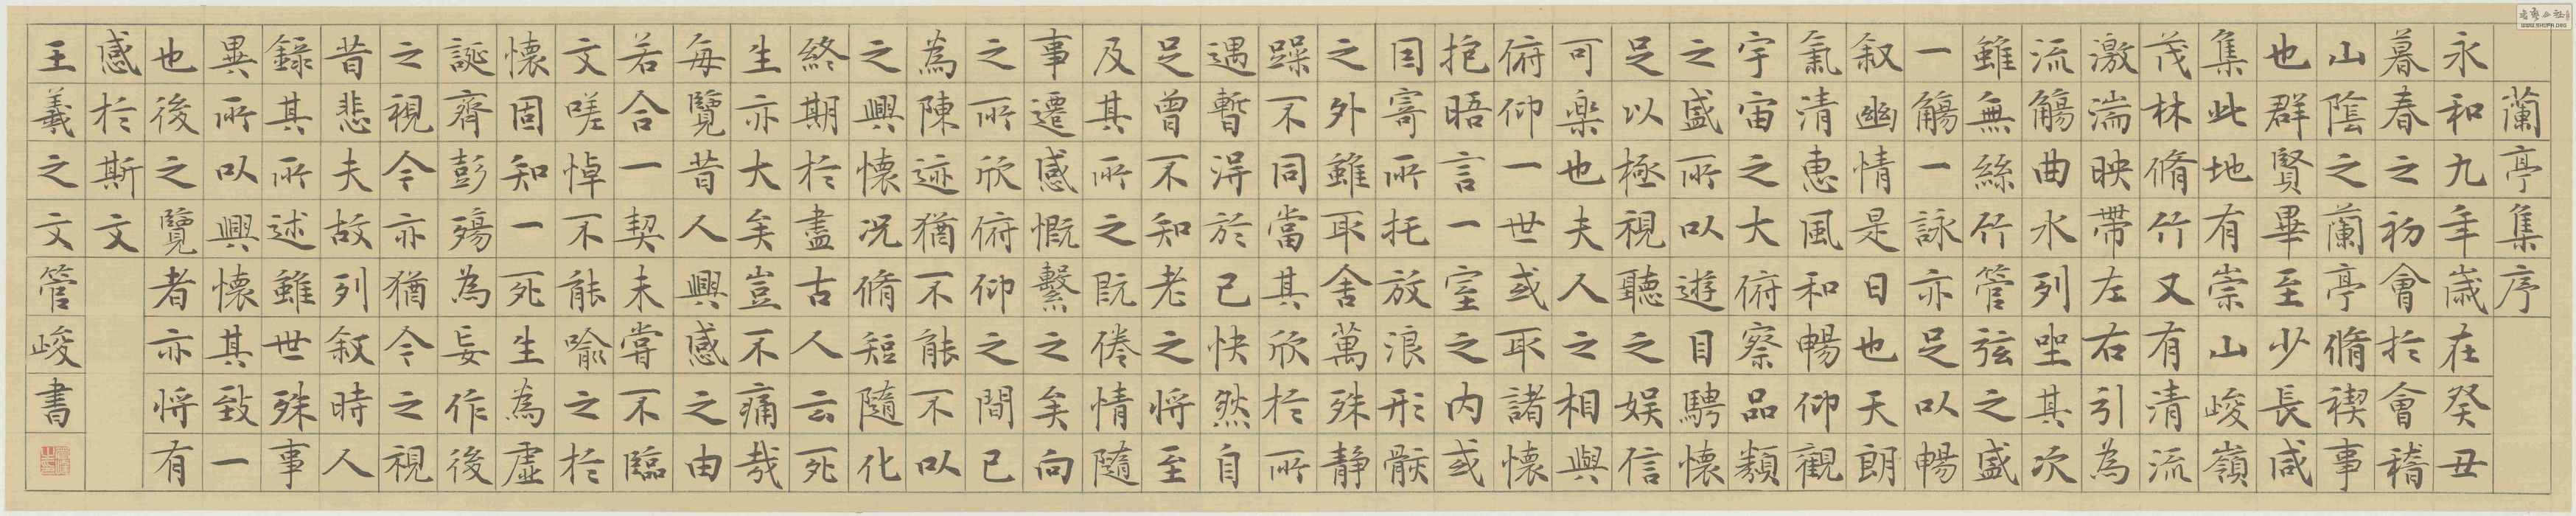 蘭亭集序
永和九年歲在癸丑
暮春之初會於會稽
山陰之蘭亭脩禊事
也群賢畢至少長咸
集此地有崇山峻嶺
茂林脩竹又有清流
激湍映帶左右引為
流觴曲水列坐其次
雖無絲竹管弦之盛
一觴一詠亦足以暢
叙幽情是日也天朗
氣清惠風和暢仰觀
宇宙之大俯察品類
之盛所以遊目騁懷
足以極視聽之娛信
可楽也夫人之相與
俯仰一世或取諸懷
抱晤言一室之內或
因寄所托放浪形骸
之外雖取舍萬殊靜
躁不同當其欣於所
遇暫得於己快然自
足曾不知老之將至
及其所之既倦情隨
事遷感慨繫之矣向
之所欣俯仰之間已
為陳迹猶不能不以
之興懷况脩短隨化
終期於盡古人云死
生亦大矣豈不痛哉
每覽昔人興感之由
若合一契未嘗不臨
文嗟悼不能喻之於
懷固知一死生為虛
誕齊彭殤為妄作後
之視今亦猶今之視
昔悲夫故列叙時人
錄其所述雖世殊事
異所以興懷其致一
也後之覽者亦將有
感於斯文
王羲之文管峻書